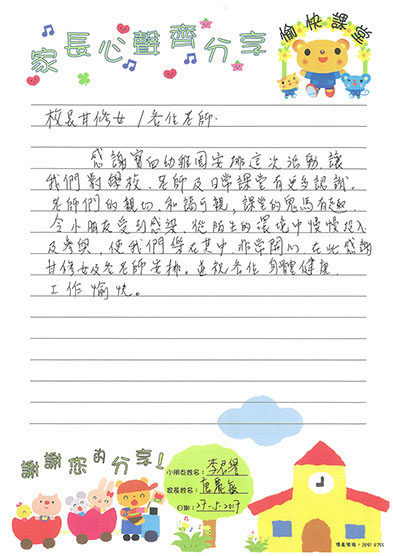 家長心聲齊分享
愉快課堂
校長甘修女/各位老師.
感謝寶血幼稚園安排這次活動,讓
我們對學校、老師及日常課堂有更多認識。
老師們的親切、和藹可親,課堂的鬼馬有趣.
令小朋友受到感染,從陌生的環境中慢慢投入
及參與,使我們樂在其中,非常開心,在此感謝
甘修女及各老師安排。並祝各位身體健康
工作愉快。
謝謝您的分享!
小朋友姓名:李
家長姓名:
日期:27-5-2017